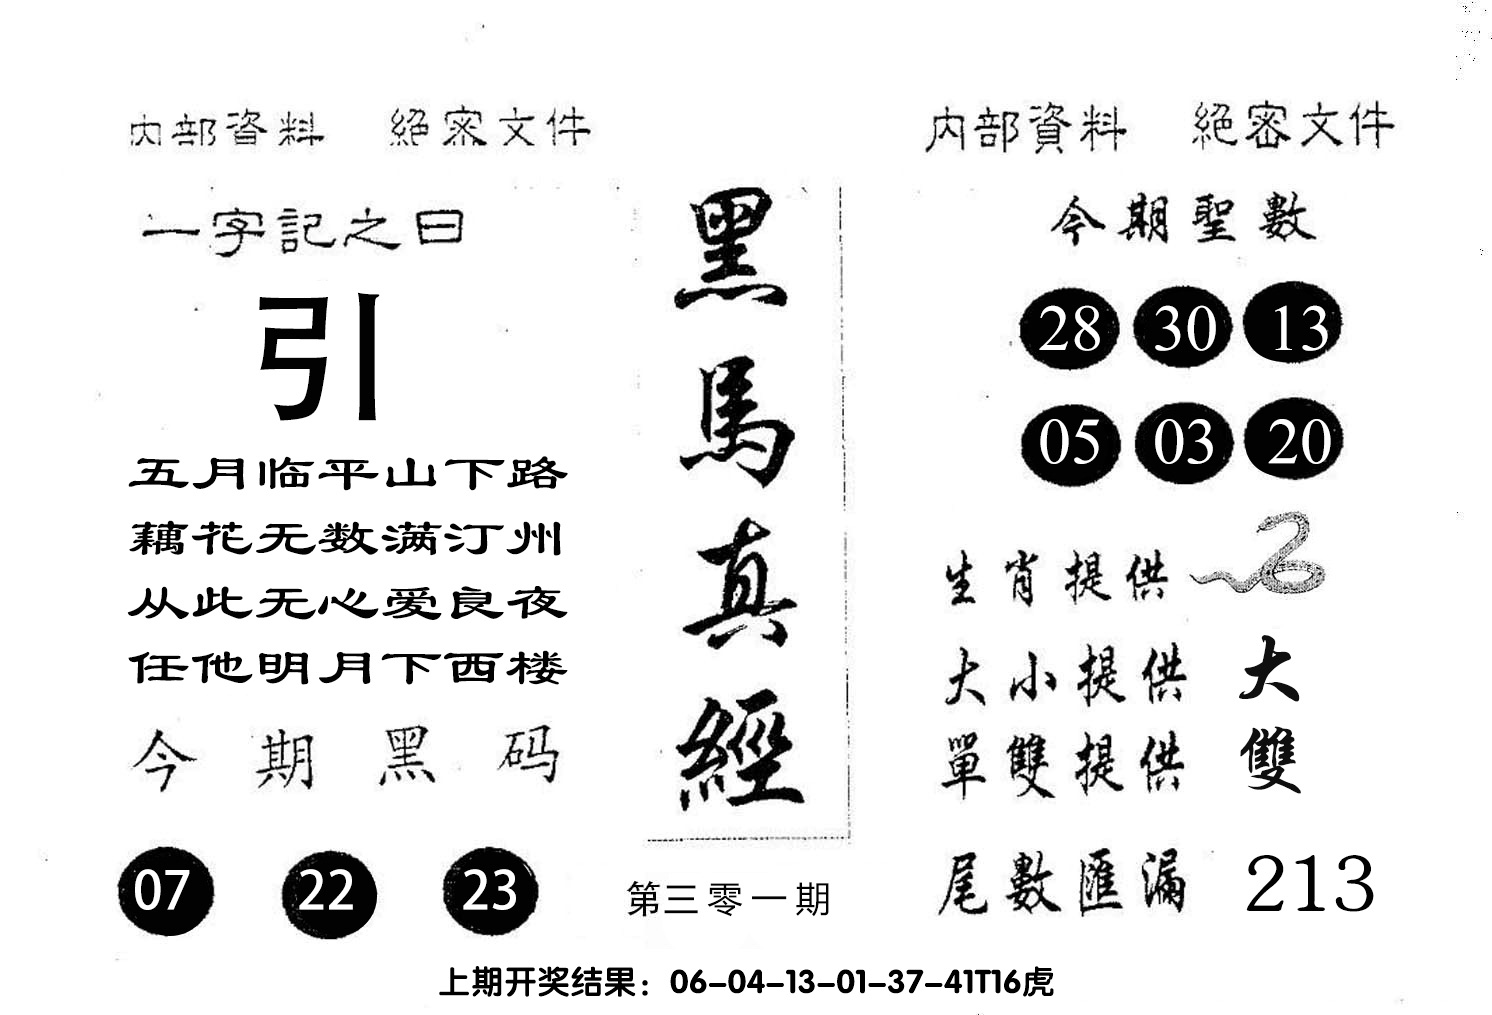 内部資料 絕密文件
一字記之曰
引
五月临平山下路
藕花无数满汀州
从此无心爱良夜
任他明月下西楼
今期黑码
07 22 23
黑馬真經
第三零一期
内部資料 絕密文件
今期聖數
28 30 13
05 03 20
生肖提供
大小提供 大
單雙提供 雙
尾數匯漏 213
上期开奖结果：06-04-13-01-37-41T16虎